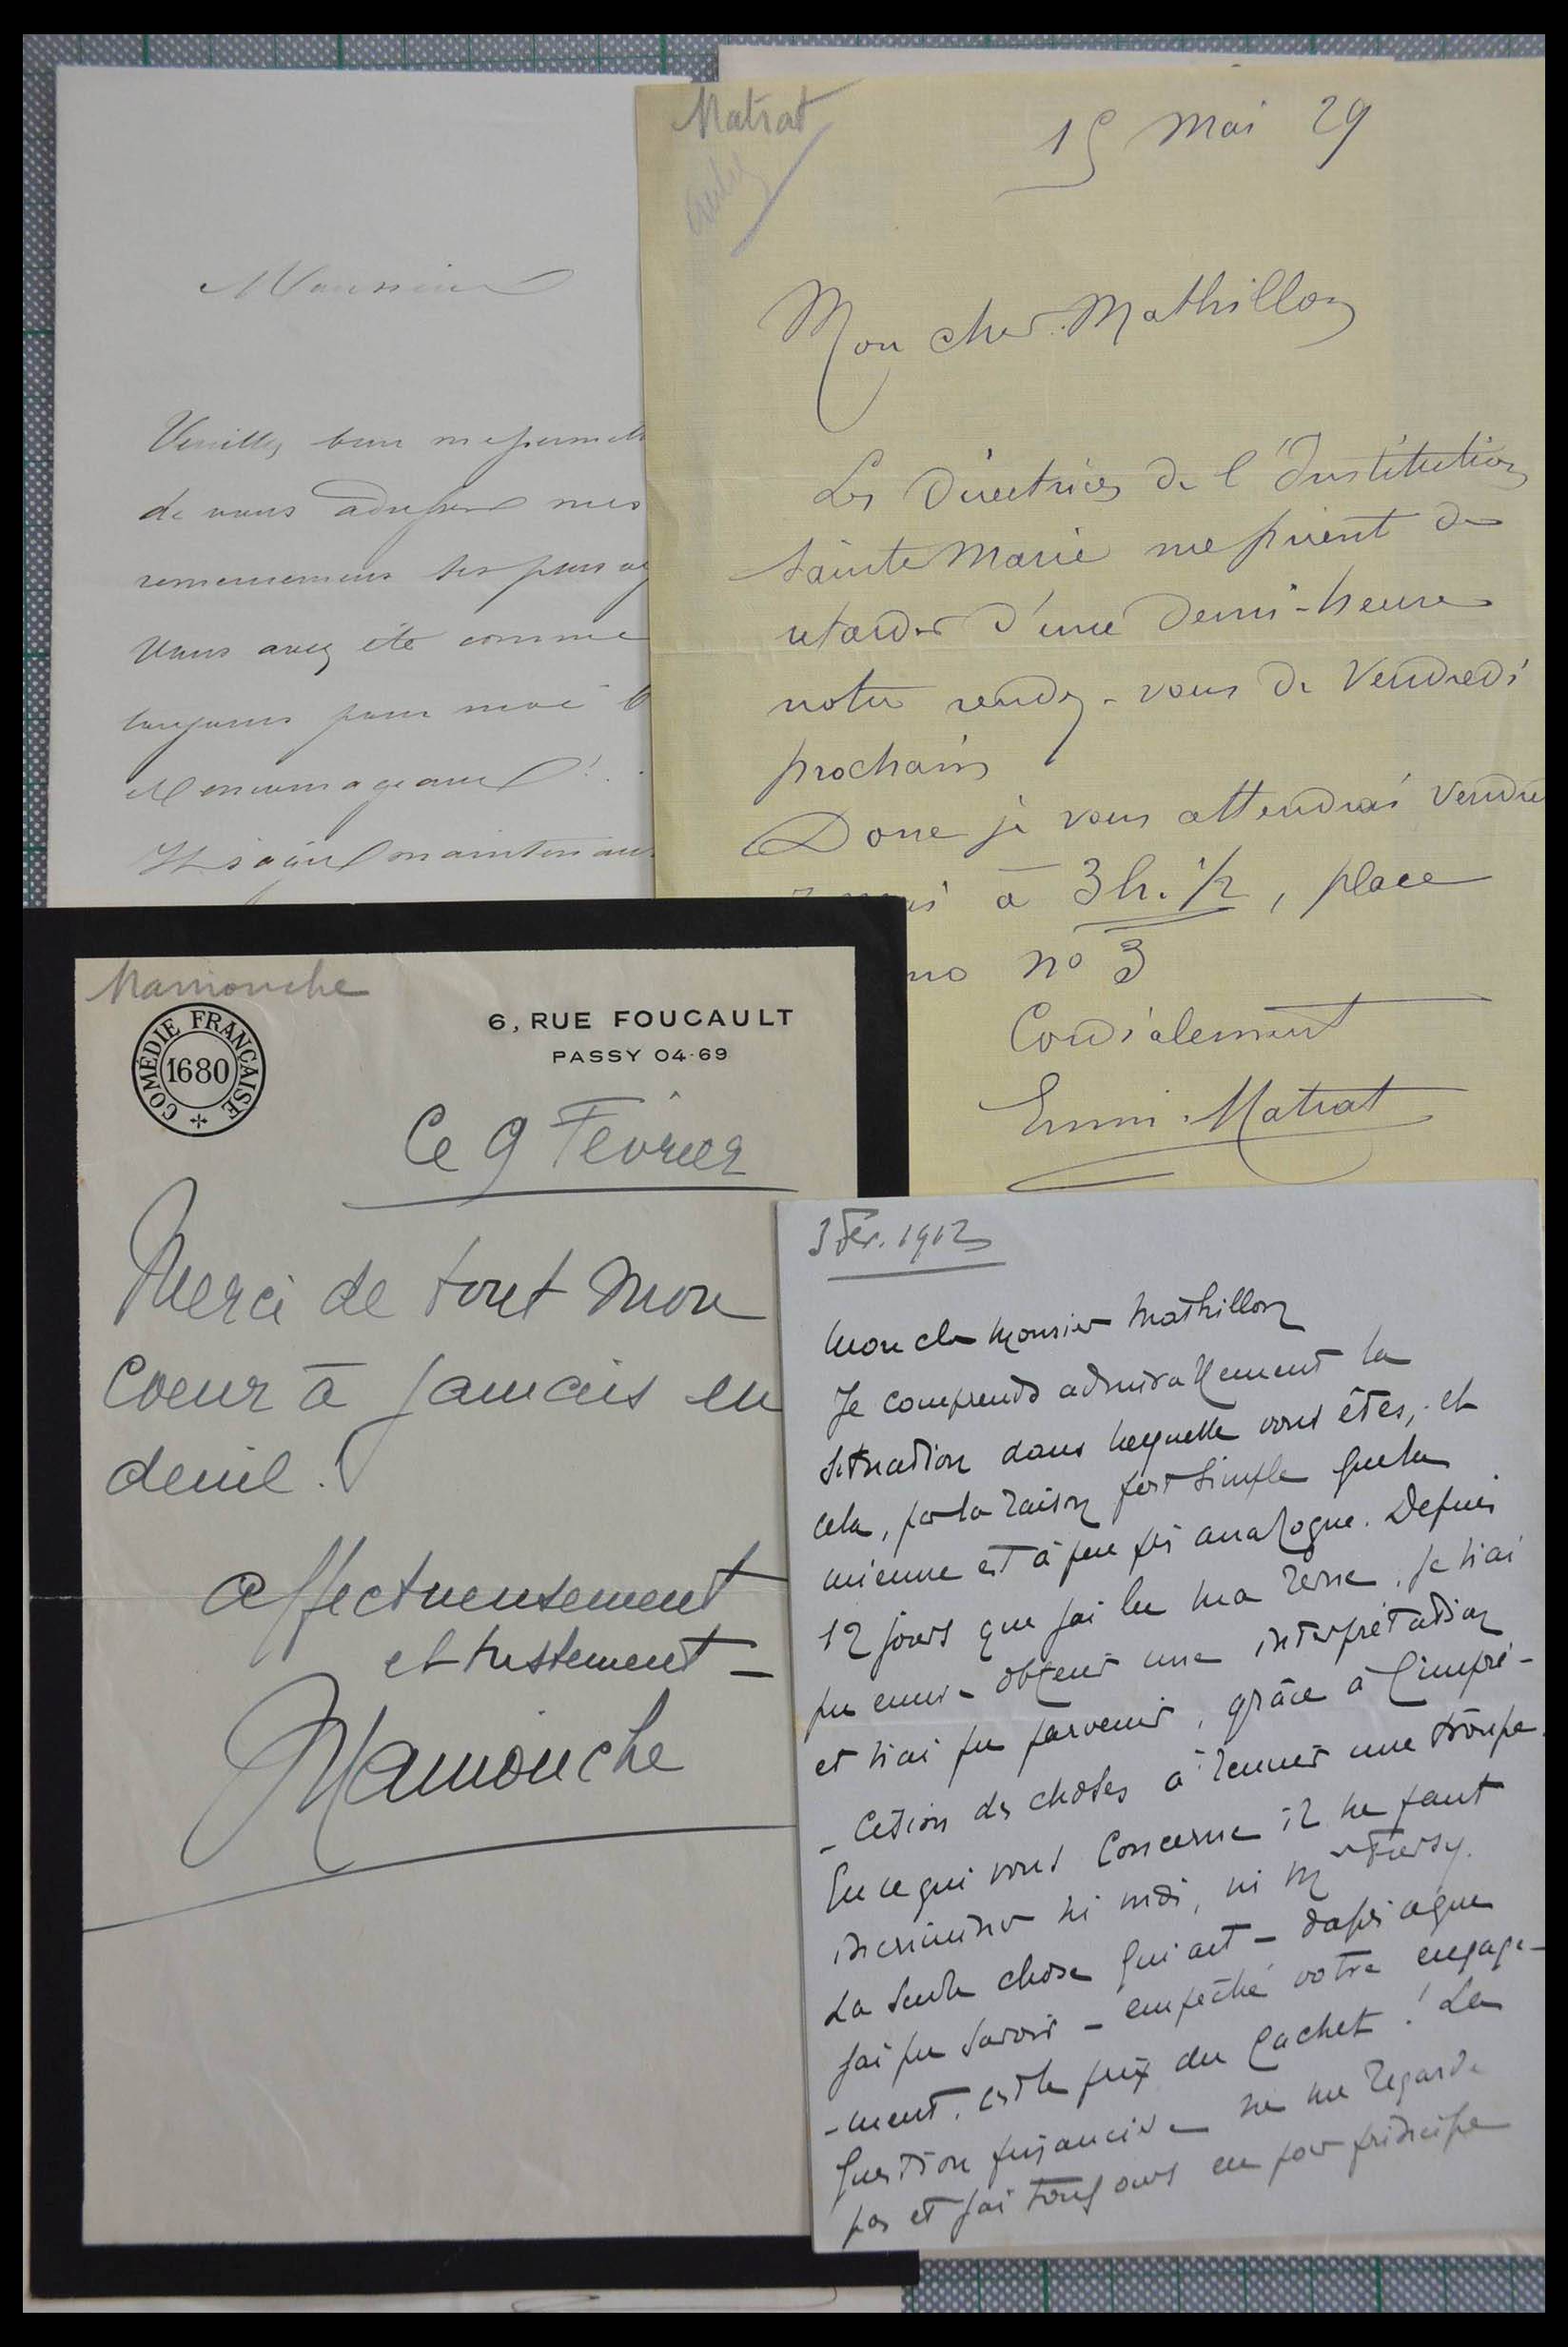 Monsieur
Veuillez bien me permett
de vous adresser mes
remerciemens les plus
Vous avez été comme
toujours pour moi
encourageant !..
maintenant
Matrat
15 Mai 29
Mon cher Mathillon
Les Directrices de l'Institution
Sainte Marie me prient de
retarder d'une demi-heure
notre rendez-vous de Vendredi
prochain
Donc je vous attendrai Vendre
à 3h. 1/2, place
no nº 3
Cordialement
Matrat
Mamouche
COMÉDIE FRANÇAISE
1680
6, RUE FOUCAULT
PASSY 04-69
Ce 9 Février
Merci de tout mon
Coeur à jamais en
deuil.
affectueusement
et tristement —
Mamouche
3 Fév. 1912
Mon cher Monsieur Mathillon
Je comprends admirablement la
situation dans laquelle vous êtes, et
cela, par la raison fort simple que la
mienne est à peu près analogue. Depuis
12 jours que j'ai lu ma revue, je n'ai
pu encore obtenir une interprétation
et n'ai pu parvenir, grâce à l'impré-
-cision des choses à réunir une troupe.
En ce qui vous concerne il ne faut
incriminer ni moi, ni Mr Fursy.
La seule chose qui ait - d'après ce que
j'ai pu savoir - empêché votre engage-
-ment, c'est le prix du cachet ! La
question financière ne me regarde
pas et j'ai toujours eu pour principe